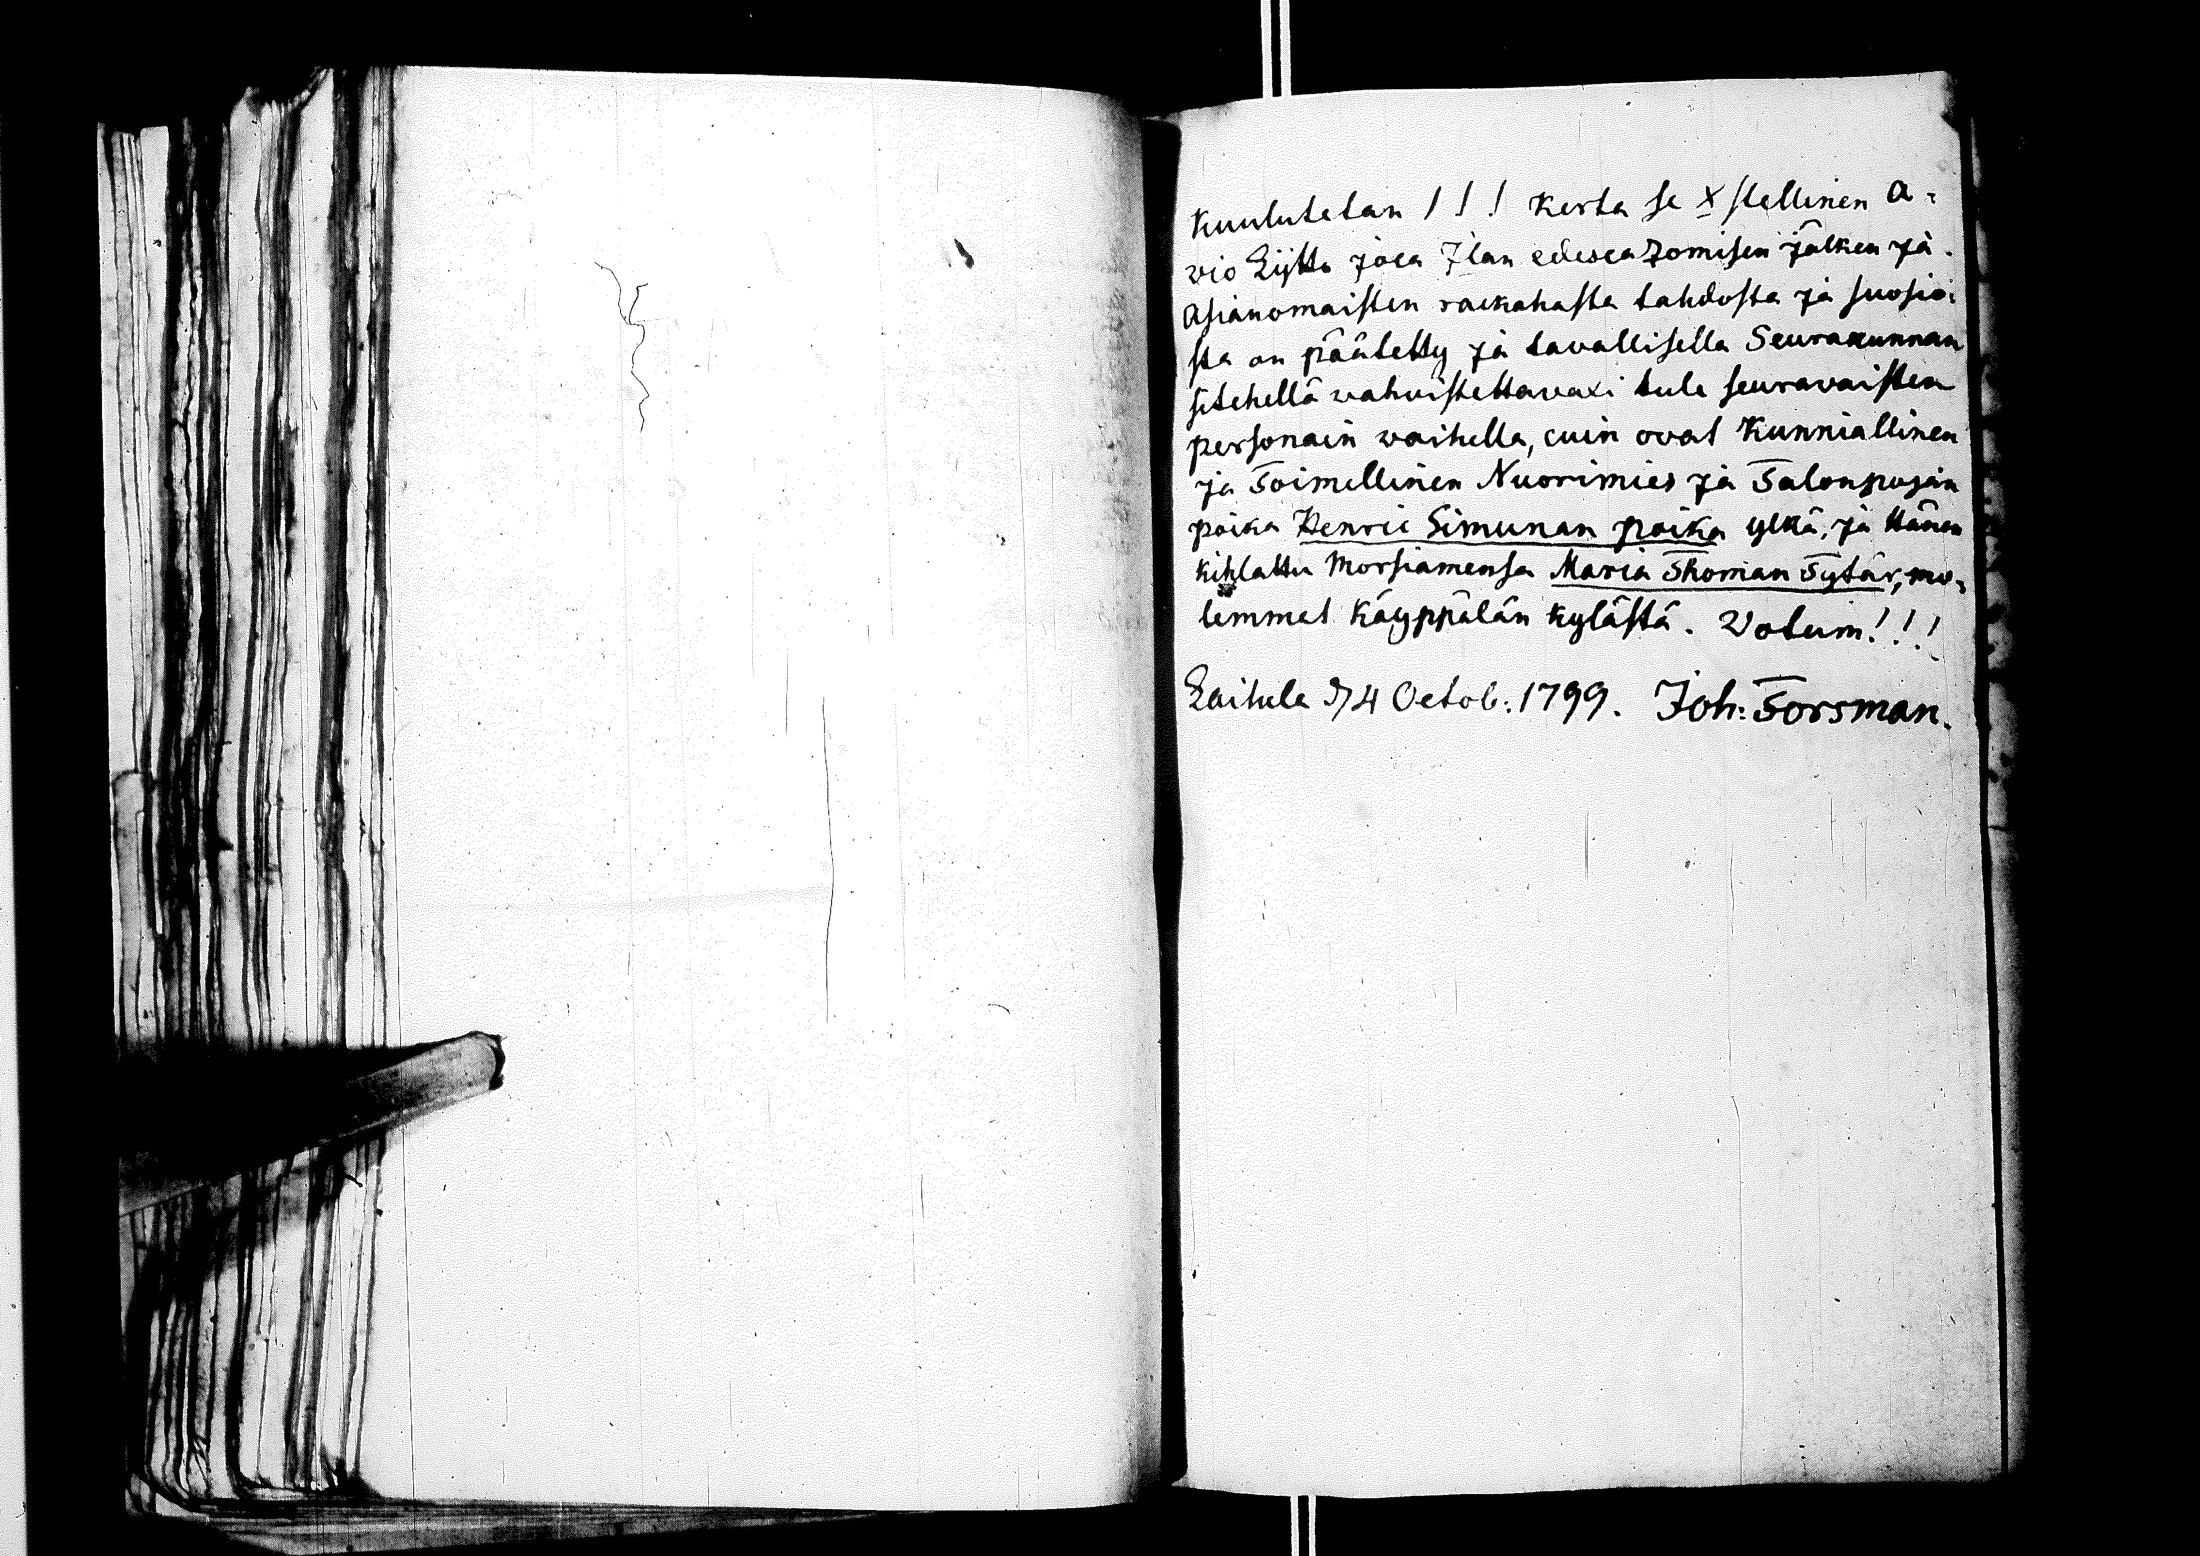 Kuulutetan 1 ! ! Kerta se Xstellinen A-
vio Lijtto joca Jlan edesca zomisen jälken ja
Asianomaisten rackahasta tahdosta ja suosio-
sta on päätetty ja tavallisella Seuracunnan
sitehellä wahvistettavaxi tule seuravaisten
personain waihella, cuin ovat Kunniallinen
ja Toimellinen Nuorimies ja Talonpojan
poika Henric Simunan poika ylkä, ja Hänen
kihlattu Morsiamensa Maria Thoman Tytär, mo-
lemmat Käyppälän kylästä. Votum! ! !
Laitula d 4 Octob: 1799. Joh: Forsman.